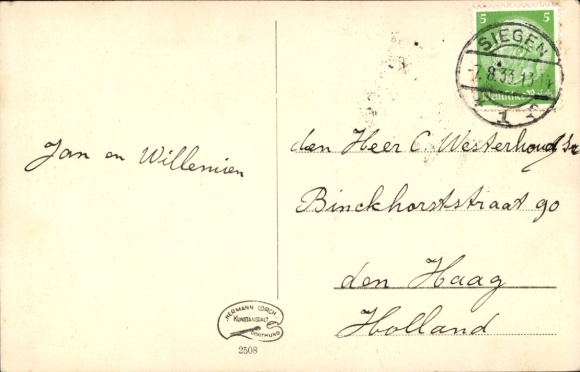 5 5
SIEGEN
7.8.33.13-14
Deutsches Reich
1 f
Jan en Willemien
den Heer C. Westerhoud Sr
Binckhorststraat 90
den Haag
Holland
HERMANN LORCH
KUNSTANSTALT
DORTMUND
2508